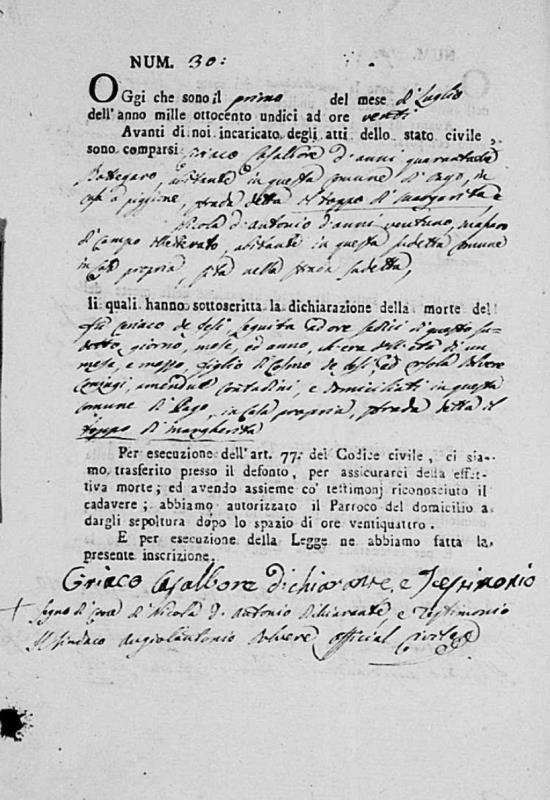 NUM. 30:
OGgi che sono il primo del mese di Luglio
dell'anno mille ottocento undici ad ore venti
Avanti di noi incaricato degli atti dello stato civile,
sono comparsi Ciriaco Casalbore d'anni quaranta
Bottegaro, abitante in questa comune di Pago, in
casa a piggione, strada detta il toppo di Margarita, e
Nicola d'Antonio d'anni ventuno,
di campo, abitante in questa sudetta comune
in casa propria, sita nella strada sudetta,
li quali hanno sottoscritta la dichiarazione della morte del
fu Ciriaco de seguita ad ore sedici di questo su-
detto giorno, mese, ed anno, ch'era dell'età di un
mese, e mezzo, figlio di Cosmo de ed Orsola
conjugi, amendue contadini, e domiciliati in questa
comune di Pago, in casa propria, strada detta il
toppo di Margherita
Per esecuzione dell'art. 77: del Codice civile, ci sia-
mo trasferito presso il defonto, per assicurarci della effet-
tiva morte; ed avendo assieme co' testimonj riconosciuto il
cadavere; abbiamo autorizzato il Parroco del domicilio a
dargli sepoltura dopo lo spazio di ore ventiquattro.
E per esecuzione della Legge ne abbiamo fatta la
presente inscrizione.
Ciriaco Casalbore dichiarante e Testimonio
Segno di Croce di Nicola d'Antonio Dichiarante, e Testimonio
Il Sindaco official Civile